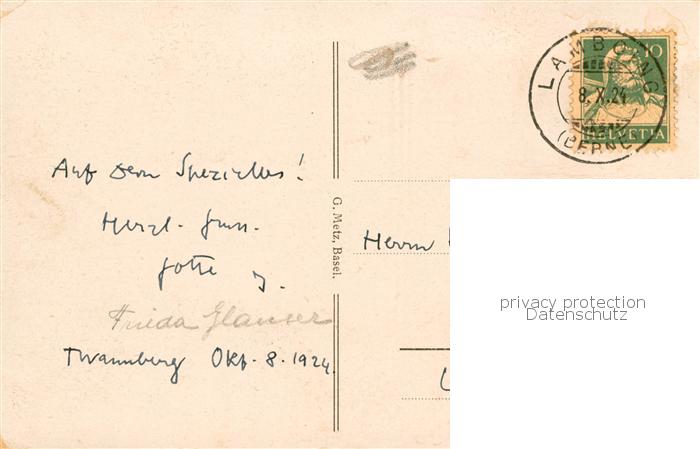 LAMBOING
8.X.24
(BERNE)
10
HELVETIA
Auf Dein Spezielles!
Herzl. Gruss.
Frieda Glauser
Twannberg Okt. 8. 1924.
G. Metz, Basel.
Herrn
privacy protection
Datenschutz